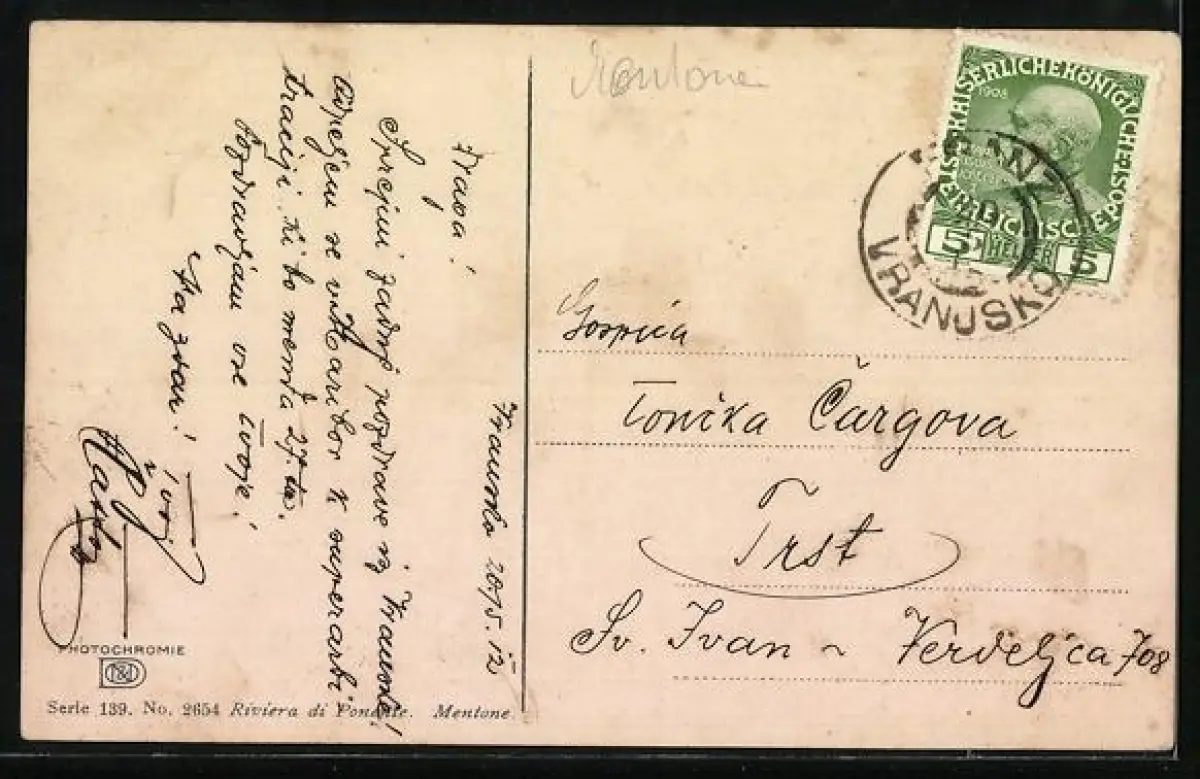 Mentone
KAISERLICHE KÖNIGLICHE ÖSTERREICHISCHE POST
1908
5 HELLER 5
FRANZ
VRANJSKO
Vransko 20/5. 12
Draga!
Sprejmi zadnje pozdrave iz Vranske!
Odpeljem se v Maribor k superarbi-
traciji, ki bo menda 27. tm.
Pozdravljam vse tvoje!
Na zdar! Tvoj
Gospica
Tonika Čargova
Trst
Sv. Ivan ~ Verdeljca 708
PHOTOCHROMIE
Serie 139. No. 2654 Riviera di Ponente. Mentone